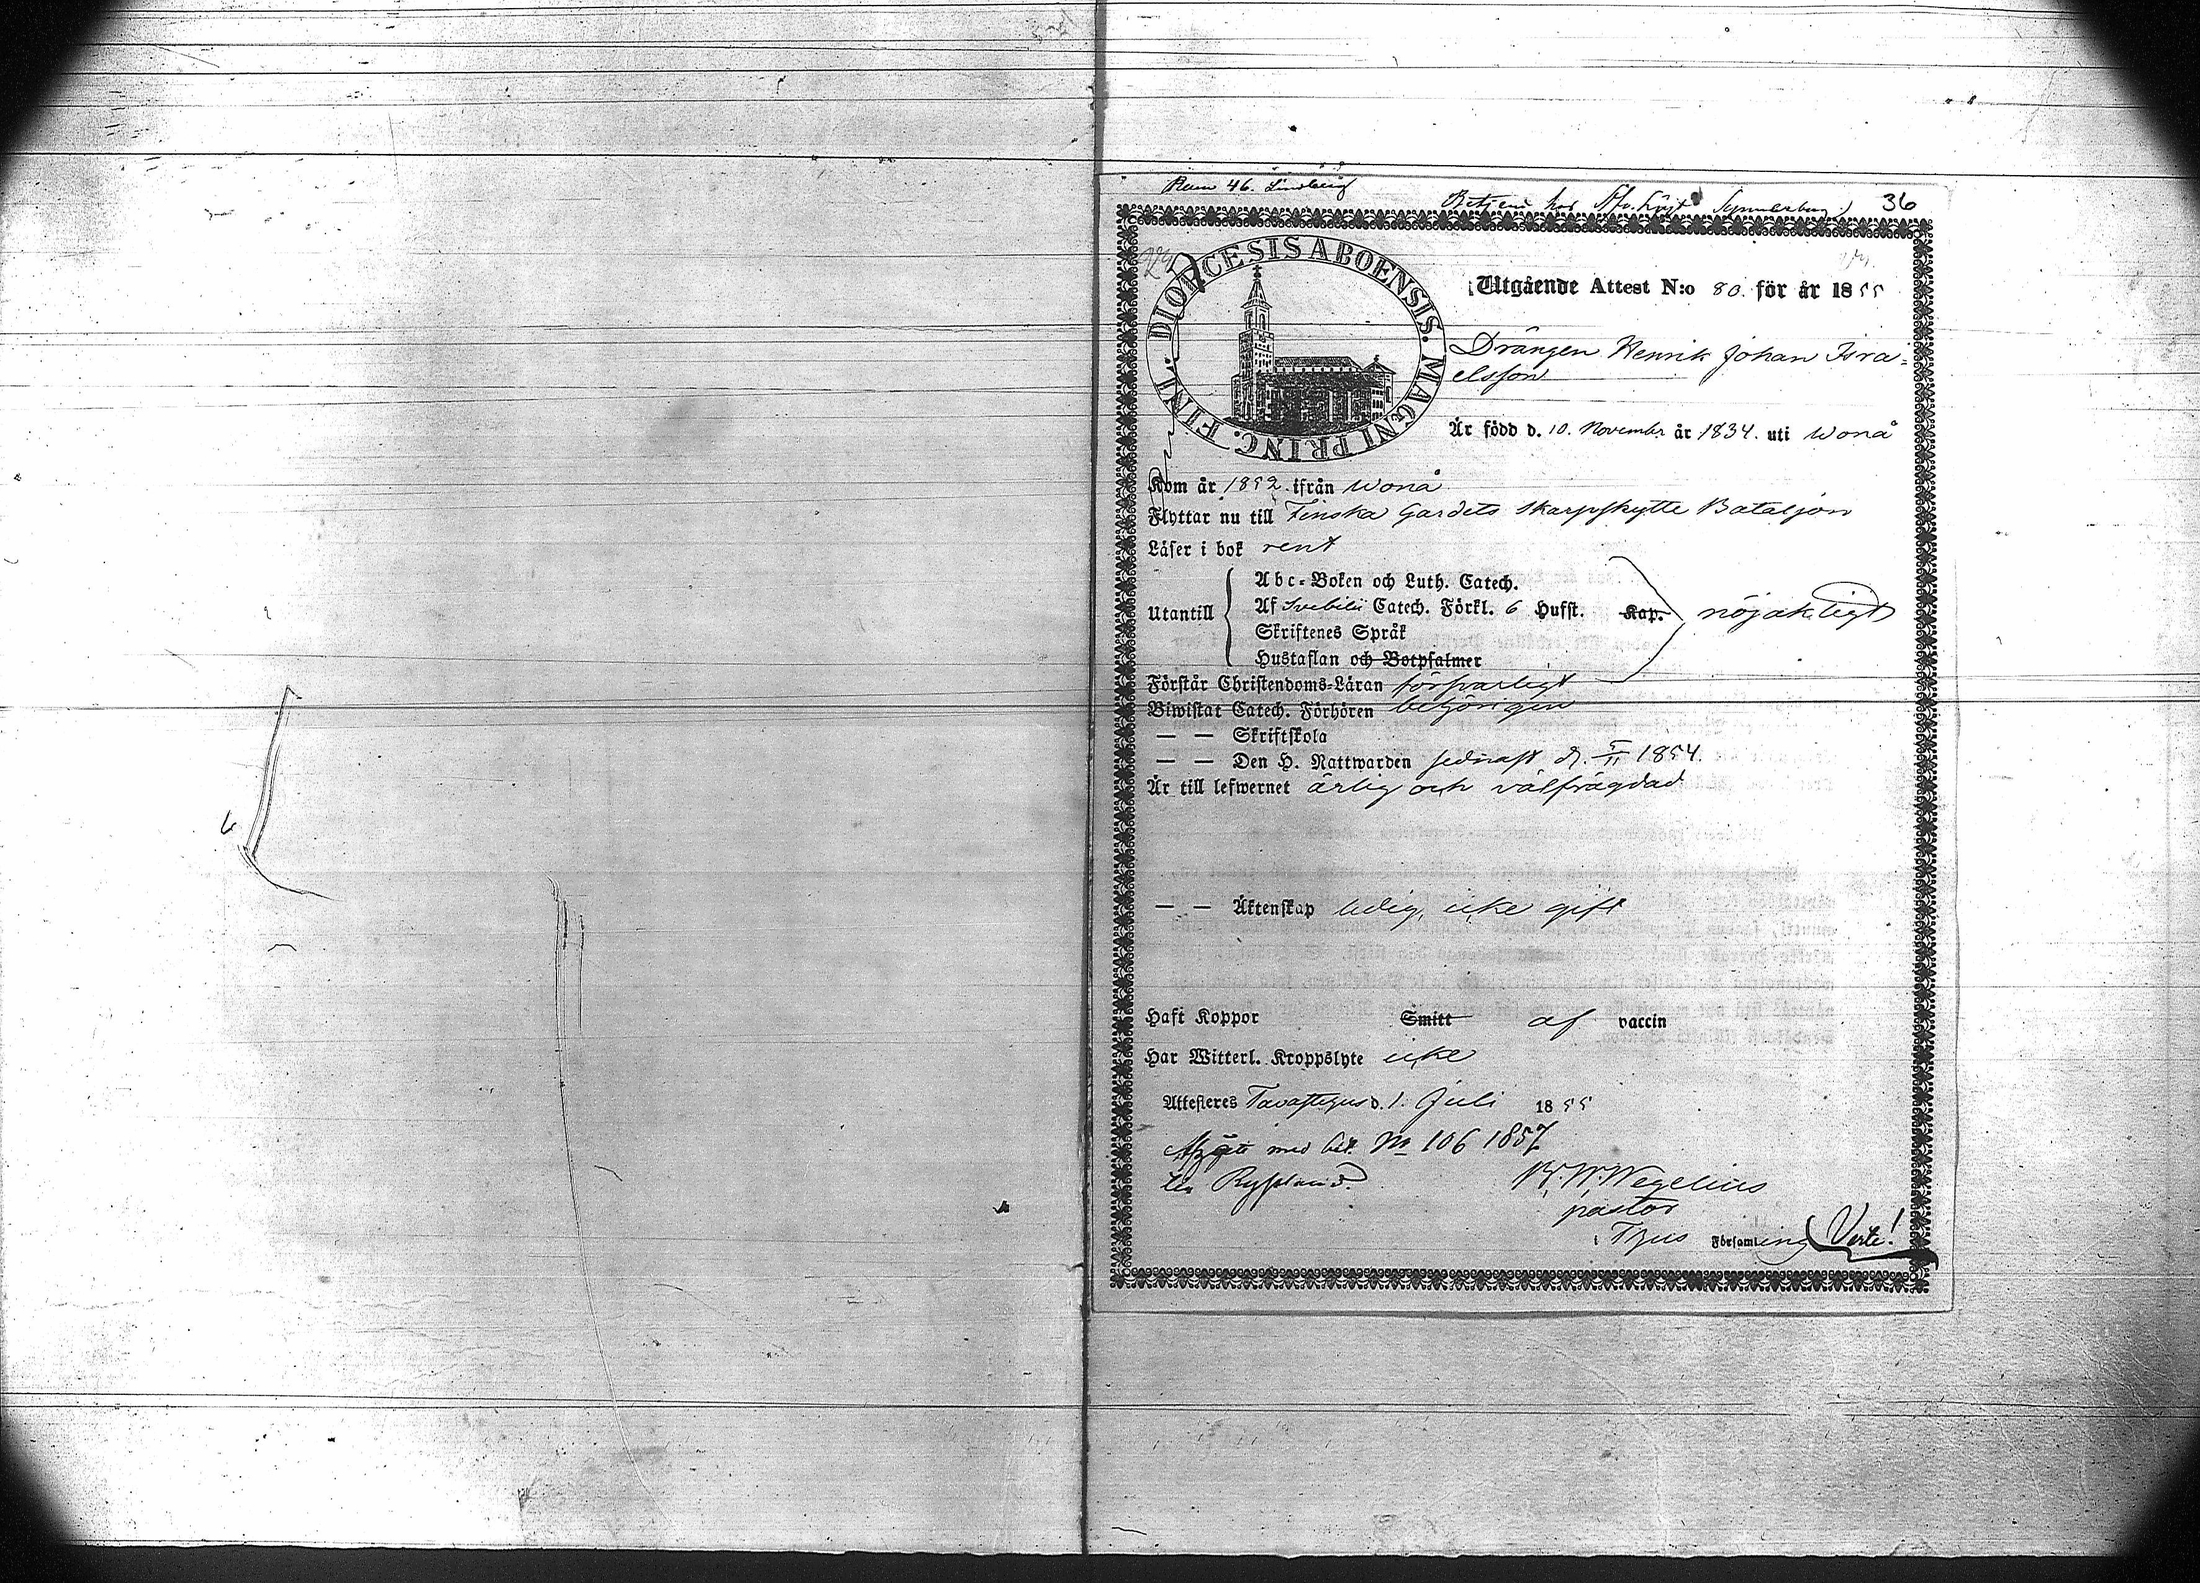 Rum 46. Lindberg
36
DIOECESIS ABOENSIS. MAGNI PRINC. FINL.
Utgående Attest N:o 80. för år 1855
Drängen Henrik Johan Isra-
elsson
Är född d. 10. November år 1834. uti Wonå
Kom år 1852. ifrån Wonå
Flyttar nu till Finska Gardets Skarpskytte Bataljon
Läser i bok rent
Utantill
Abc-Boken och Luth. Catech.
Af Svebilii Catech. Förkl. 6 Hufst. Kap. nöjaktligt
Skriftenes Språk
Hustaflan och Botpsalmer
Förstår Christendoms-Läran försvarligt
Biwistat Catech. Förhören behörigen
— — Skriftskola
— — Den H. Nattwarden sednast d. 5/11 1854.
Är till lefwernet ärlig och välfrägdad
— — Äktenskap ledig, icke gift
Haft Koppor Smitt af vaccin
Har Witterl. Kroppslyte icke
Attesteres Tavastehus d. 1. Juli 1855
med bet. No 106 1857
till Ryssland.
W. Wegelius
pastor
i Thus Församling
Verte!